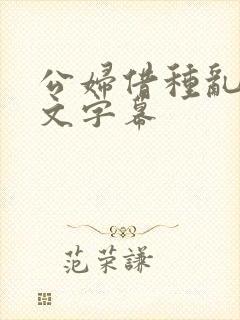 公婦借種亂
文字幕
范荣謙